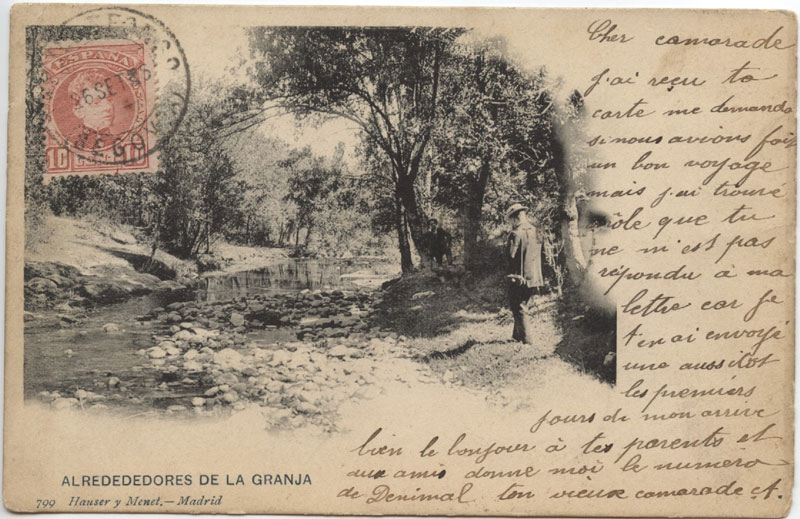 ESPAÑA
10
26 SET
SEGOVIA
Cher camarade
j'ai reçu ta
carte me demanda
si nous avions fait
un bon voyage
mais j'ai trouvé
drôle que tu
ne m'est pas
répondu à ma
lettre car je
t'en ai envoyé
une aussitot
les premiers
jours de mon arrivé
bien le bonjour à tes parents et
aux amis donne moi le numéro
de Denimal ton vieux camarade A.
ALREDEDEDORES DE LA GRANJA
799 Hauser y Menet.—Madrid